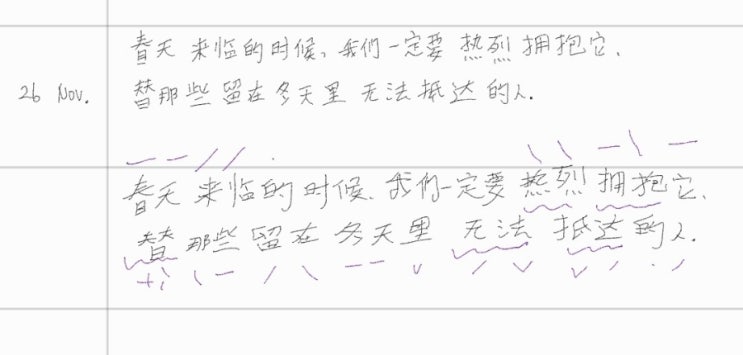 春天来临的时候，我们一定要热烈拥抱它，
26 Nov. 替那些留在冬天里无法抵达的人.
春天来临的时候，我们一定要热烈拥抱它，
替那些留在冬天里无法抵达的人.
ti